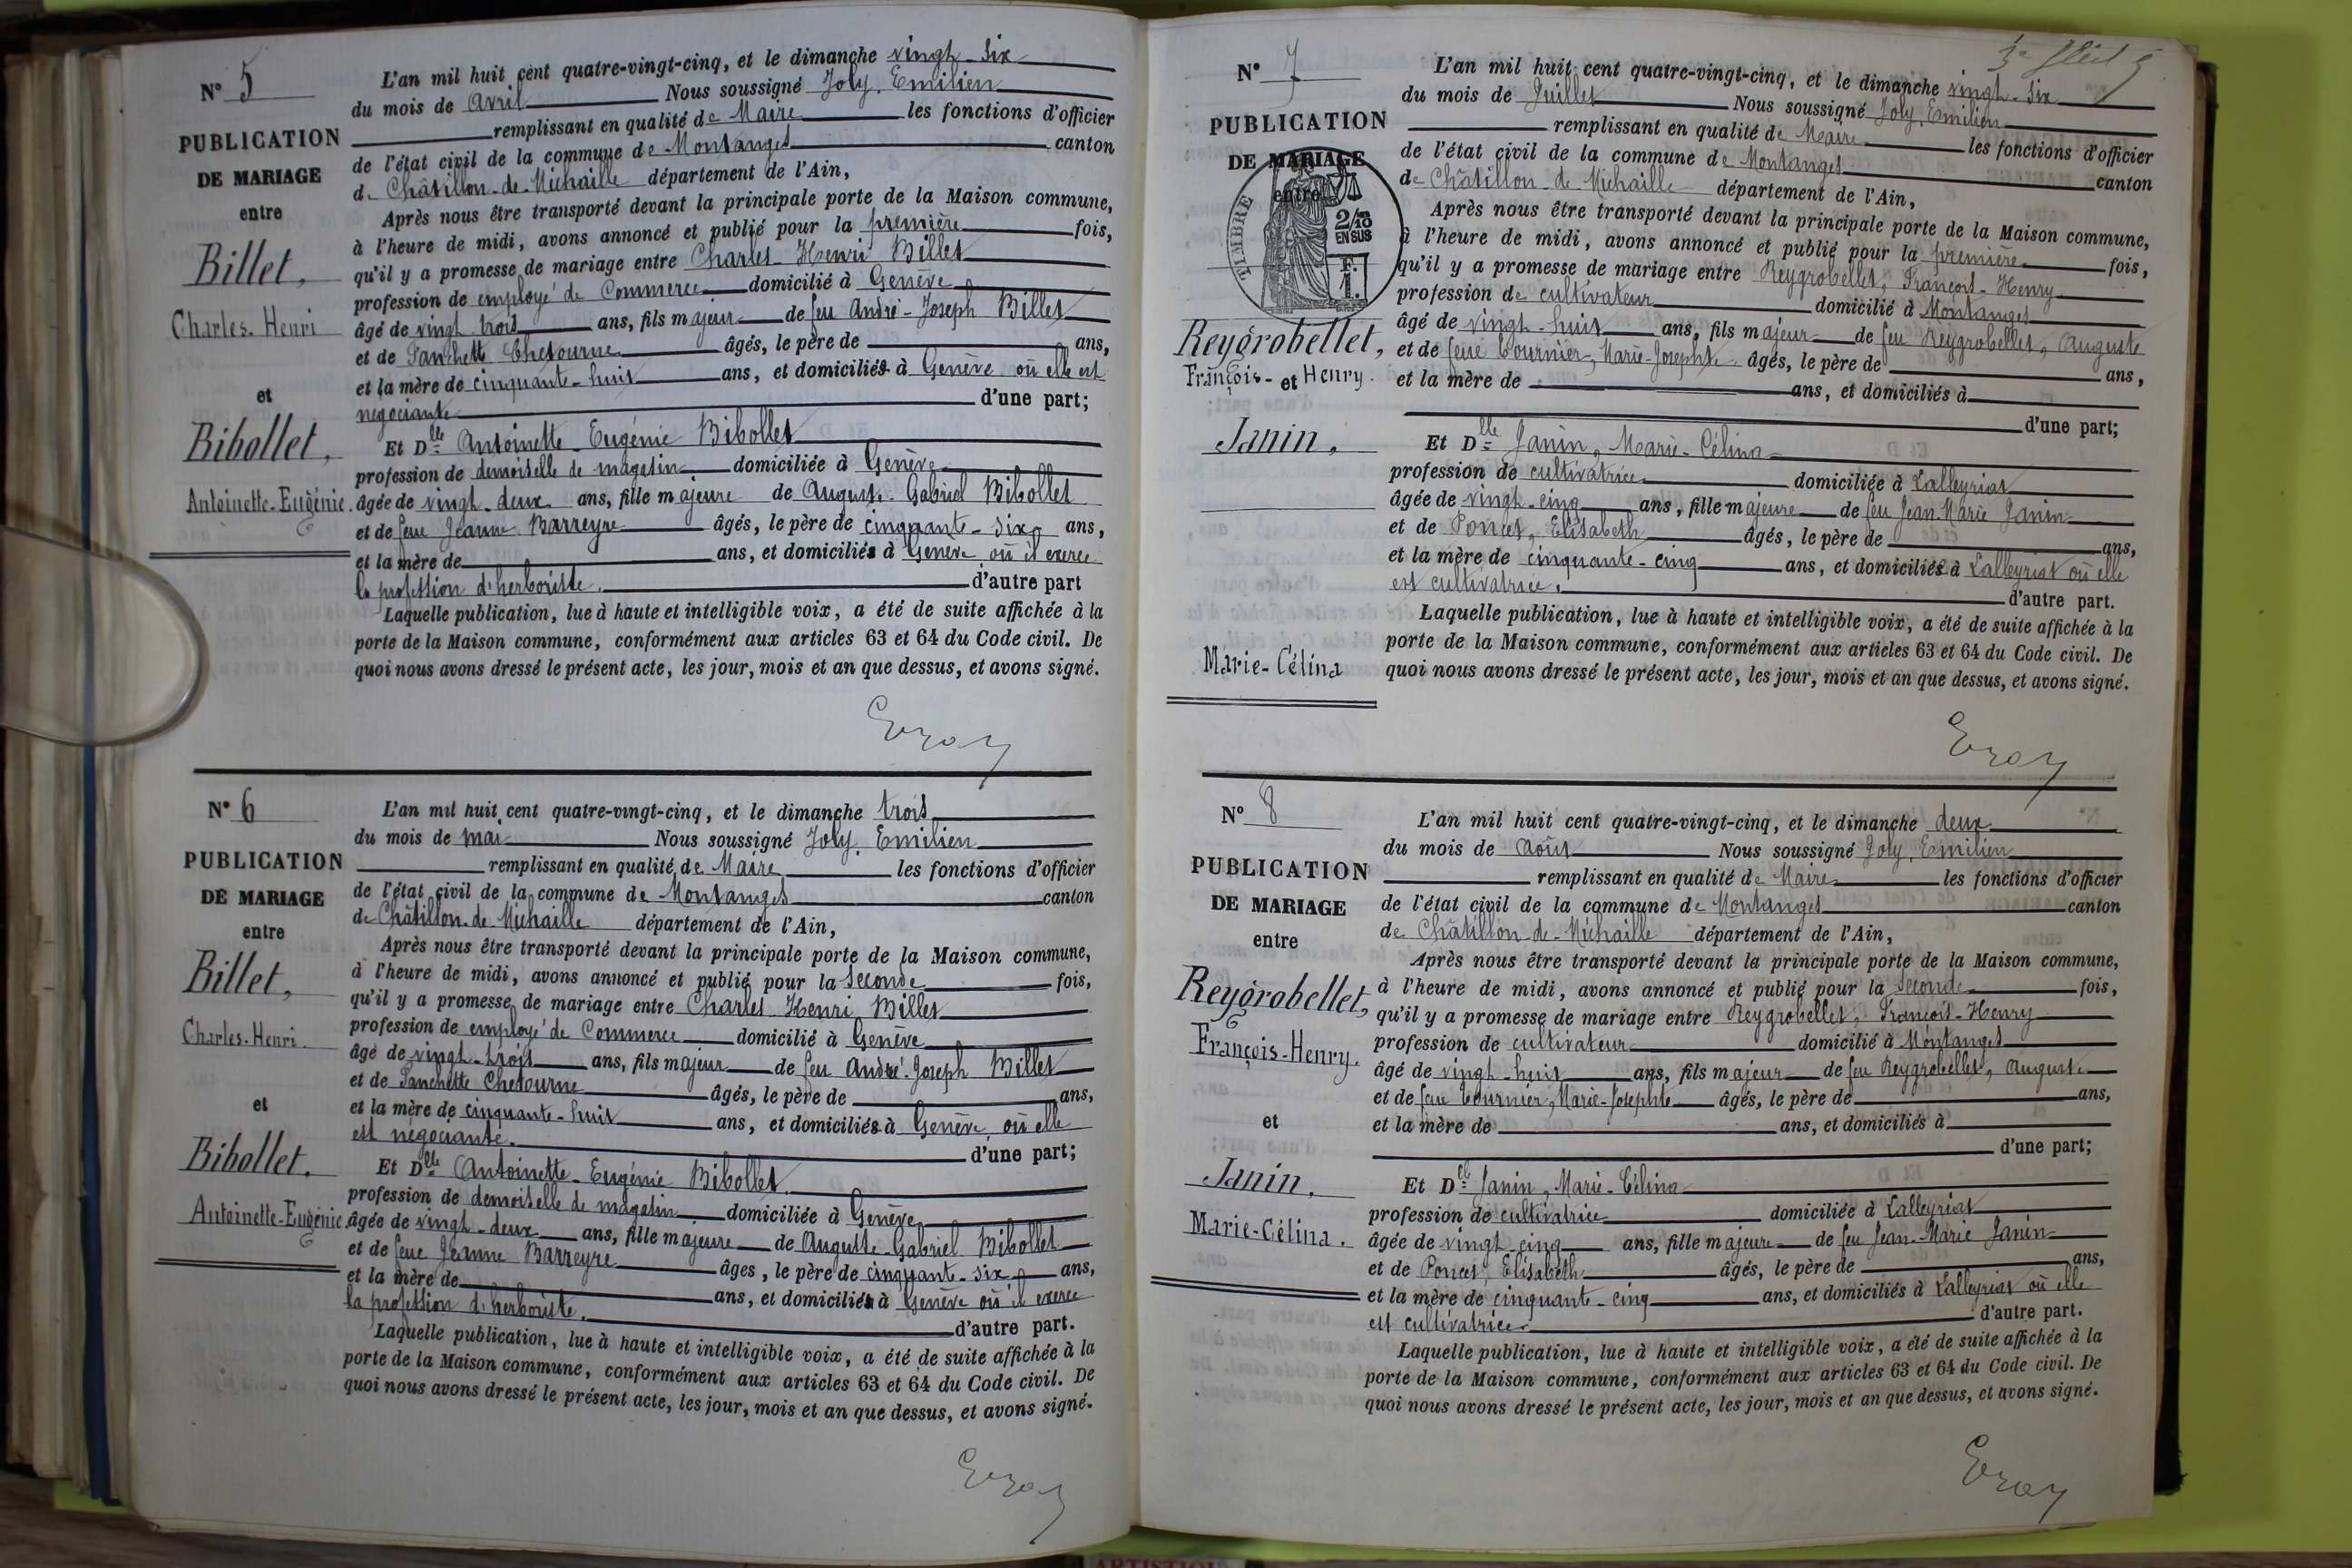 N° 5
PUBLICATION
DE MARIAGE
entre
Billet,
Charles-Henri
et
Bibollet,
Antoinette-Eugénie.
L'an mil huit cent quatre-vingt-cinq, et le dimanche vingt-six
du mois de avril Nous soussigné Joly, Emilien
remplissant en qualité de Maire les fonctions d'officier
de l'état civil de la commune de Montanges canton
de Châtillon-de-Michaille département de l'Ain,
Après nous être transporté devant la principale porte de la Maison commune,
à l'heure de midi, avons annoncé et publié pour la première fois,
qu'il y a promesse de mariage entre Charles-Henri Billet
profession de employé de Commerce domicilié à Genève
âgé de vingt-trois ans, fils majeur de feu André-Joseph Billet
et de Fanchette Chetourne âgés, le père de ans,
et la mère de cinquante-huit ans, et domiciliés à Genève où elle est
négociante d'une part;
Et Dlle Antoinette-Eugénie Bibollet
profession de demoiselle de magasin domiciliée à Genève
âgée de vingt-deux ans, fille majeure de Auguste-Gabriel Bibollet
et de feue Jeanne Barreyre âgés, le père de cinquante-six ans,
et la mère de ans, et domiciliés à Genève où il exerce
la profession d'herboriste. d'autre part
Laquelle publication, lue à haute et intelligible voix, a été de suite affichée à la
porte de la Maison commune, conformément aux articles 63 et 64 du Code civil. De
quoi nous avons dressé le présent acte, les jour, mois et an que dessus, et avons signé.
N° 6
PUBLICATION
DE MARIAGE
entre
Billet,
Charles-Henri
et
Bibollet.
Antoinette-Eugénie.
L'an mil huit cent quatre-vingt-cinq, et le dimanche trois
du mois de mai Nous soussigné Joly, Emilien
remplissant en qualité de Maire les fonctions d'officier
de l'état civil de la commune de Montanges canton
de Châtillon-de-Michaille département de l'Ain,
Après nous être transporté devant la principale porte de la Maison commune,
à l'heure de midi, avons annoncé et publié pour la seconde fois,
qu'il y a promesse de mariage entre Charles Henri Billet
profession de employé de Commerce domicilié à Genève
âgé de vingt-trois ans, fils majeur de feu André-Joseph Billet
et de Fanchette Chetourne âgés, le père de ans,
et la mère de cinquante-huit ans, et domiciliés à Genève, où elle
est négociante. d'une part;
Et Dlle Antoinette-Eugénie Bibollet.
profession de demoiselle de magasin domiciliée à Genève
âgée de vingt-deux ans, fille majeure de Auguste-Gabriel Bibollet
et de feue Jeanne Barreyre âges, le père de cinquante-six ans,
et la mère de ans, et domiciliés à Genève où il exerce
la profession d'herboriste. d'autre part.
Laquelle publication, lue à haute et intelligible voix, a été de suite affichée à la
porte de la Maison commune, conformément aux articles 63 et 64 du Code civil. De
quoi nous avons dressé le présent acte, les jour, mois et an que dessus, et avons signé.
N° 7
PUBLICATION
DE MARIAGE
entre
TIMBRE
2/10
EN SUS
F.
1.
Reygrobellet,
François-Henry.
et
Janin,
Marie-Célina
L'an mil huit cent quatre-vingt-cinq, et le dimanche vingt-six
du mois de Juillet Nous soussigné Joly, Emilien
remplissant en qualité de Maire les fonctions d'officier
de l'état civil de la commune de Montanges canton
de Châtillon-de-Michaille département de l'Ain,
Après nous être transporté devant la principale porte de la Maison commune,
à l'heure de midi, avons annoncé et publié pour la première fois,
qu'il y a promesse de mariage entre Reygrobellet, François-Henry
profession de cultivateur domicilié à Montanges
âgé de vingt-huit ans, fils majeur de feu Reygrobellet, Auguste
et de feue Tournier, Marie-Josephte âgés, le père de ans,
et la mère de ans, et domiciliés à
d'une part;
Et Dlle Janin, Marie-Célina
profession de cultivatrice domiciliée à Lalleyriat
âgée de vingt-cinq ans, fille majeure de feu Jean Marie Janin
et de Poncet, Elisabeth âgés, le père de ans,
et la mère de cinquante-cinq ans, et domiciliés à Lalleyriat où elle
est cultivatrice. d'autre part.
Laquelle publication, lue à haute et intelligible voix, a été de suite affichée à la
porte de la Maison commune, conformément aux articles 63 et 64 du Code civil. De
quoi nous avons dressé le présent acte, les jour, mois et an que dessus, et avons signé.
N° 8
PUBLICATION
DE MARIAGE
entre
Reygrobellet,
François-Henry.
et
Janin.
Marie-Célina.
L'an mil huit cent quatre-vingt-cinq, et le dimanche deux
du mois de Août Nous soussigné Joly, Emilien
remplissant en qualité de Maire les fonctions d'officier
de l'état civil de la commune de Montanges canton
de Châtillon-de-Michaille département de l'Ain,
Après nous être transporté devant la principale porte de la Maison commune,
à l'heure de midi, avons annoncé et publié pour la seconde fois,
qu'il y a promesse de mariage entre Reygrobellet, François-Henry
profession de cultivateur domicilié à Montanges
âgé de vingt-huit ans, fils majeur de feu Reygrobellet, Auguste
et de feue Tournier, Marie-Josephte âgés, le père de ans,
et la mère de ans, et domiciliés à
d'une part;
Et Dlle Janin, Marie-Célina
profession de cultivatrice domiciliée à Lalleyriat
âgée de vingt-cinq ans, fille majeure de feu Jean-Marie Janin
et de Poncet, Elisabeth âgés, le père de ans,
et la mère de cinquante-cinq ans, et domiciliés à Lalleyriat où elle
est cultivatrice. d'autre part.
Laquelle publication, lue à haute et intelligible voix, a été de suite affichée à la
porte de la Maison commune, conformément aux articles 63 et 64 du Code civil. De
quoi nous avons dressé le présent acte, les jour, mois et an que dessus, et avons signé.